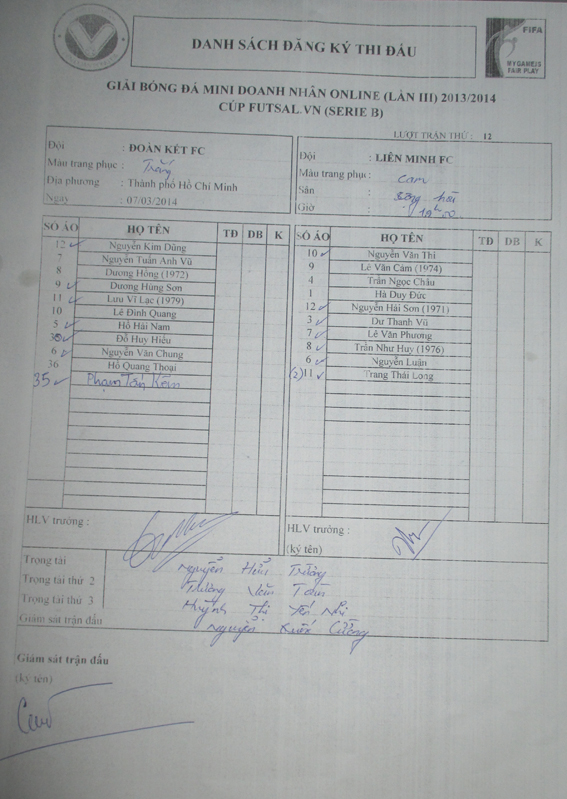 DANH SÁCH ĐĂNG KÝ THI ĐẤU
FIFA
MY GAME IS
FAIR PLAY
GIẢI BÓNG ĐÁ MINI DOANH NHÂN ONLINE (LẦN III) 2013/2014
CÚP FUTSAL.VN (SERIE B)
LƯỢT TRẬN THỨ : 12
Đội : ĐOÀN KẾT FC
Màu trang phục : Trắng
Địa phương : Thành phố Hồ Chí Minh
Ngày : 07/03/2014
Đội : LIÊN MINH FC
Màu trang phục : Cam
Sân :
Giờ : 19h00
SỐ ÁO HỌ TÊN TĐ ĐB K
12 Nguyễn Kim Dũng
7 Nguyễn Tuấn Anh Vũ
8 Dương Hồng (1972)
9 Dương Hùng Sơn
11 Lưu Vĩ Lạc (1979)
10 Lê Đình Quang
5 Hồ Hải Nam
Đỗ Huy Hiếu
6 Nguyễn Văn Chung
36 Hồ Quang Thoại
35 Phạm Tấn
SỐ ÁO HỌ TÊN TĐ ĐB K
10 Nguyễn Văn Thi
9 Lê Văn Cảm (1974)
4 Trần Ngọc Châu
1 Hà Duy Đức
12 Nguyễn Hải Sơn (1971)
3 Dư Thanh Vũ
7 Lê Văn Phương
8 Trần Như Huy (1976)
6 Nguyễn Luân
(2) 11 Trang Thái Long
HLV trưởng :
HLV trưởng :
(ký tên)
Trọng tài Nguyễn Hữu Trường
Trọng tài thứ 2 Trương Văn Toàn
Trọng tài thứ 3 Huỳnh Thị Yến Nhi
Giám sát trận đấu Nguyễn Xuân Cường
Giám sát trận đấu
(ký tên)